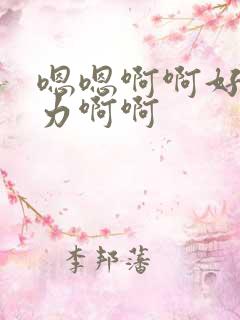 嗯嗯啊啊好
力啊啊
李邦藩